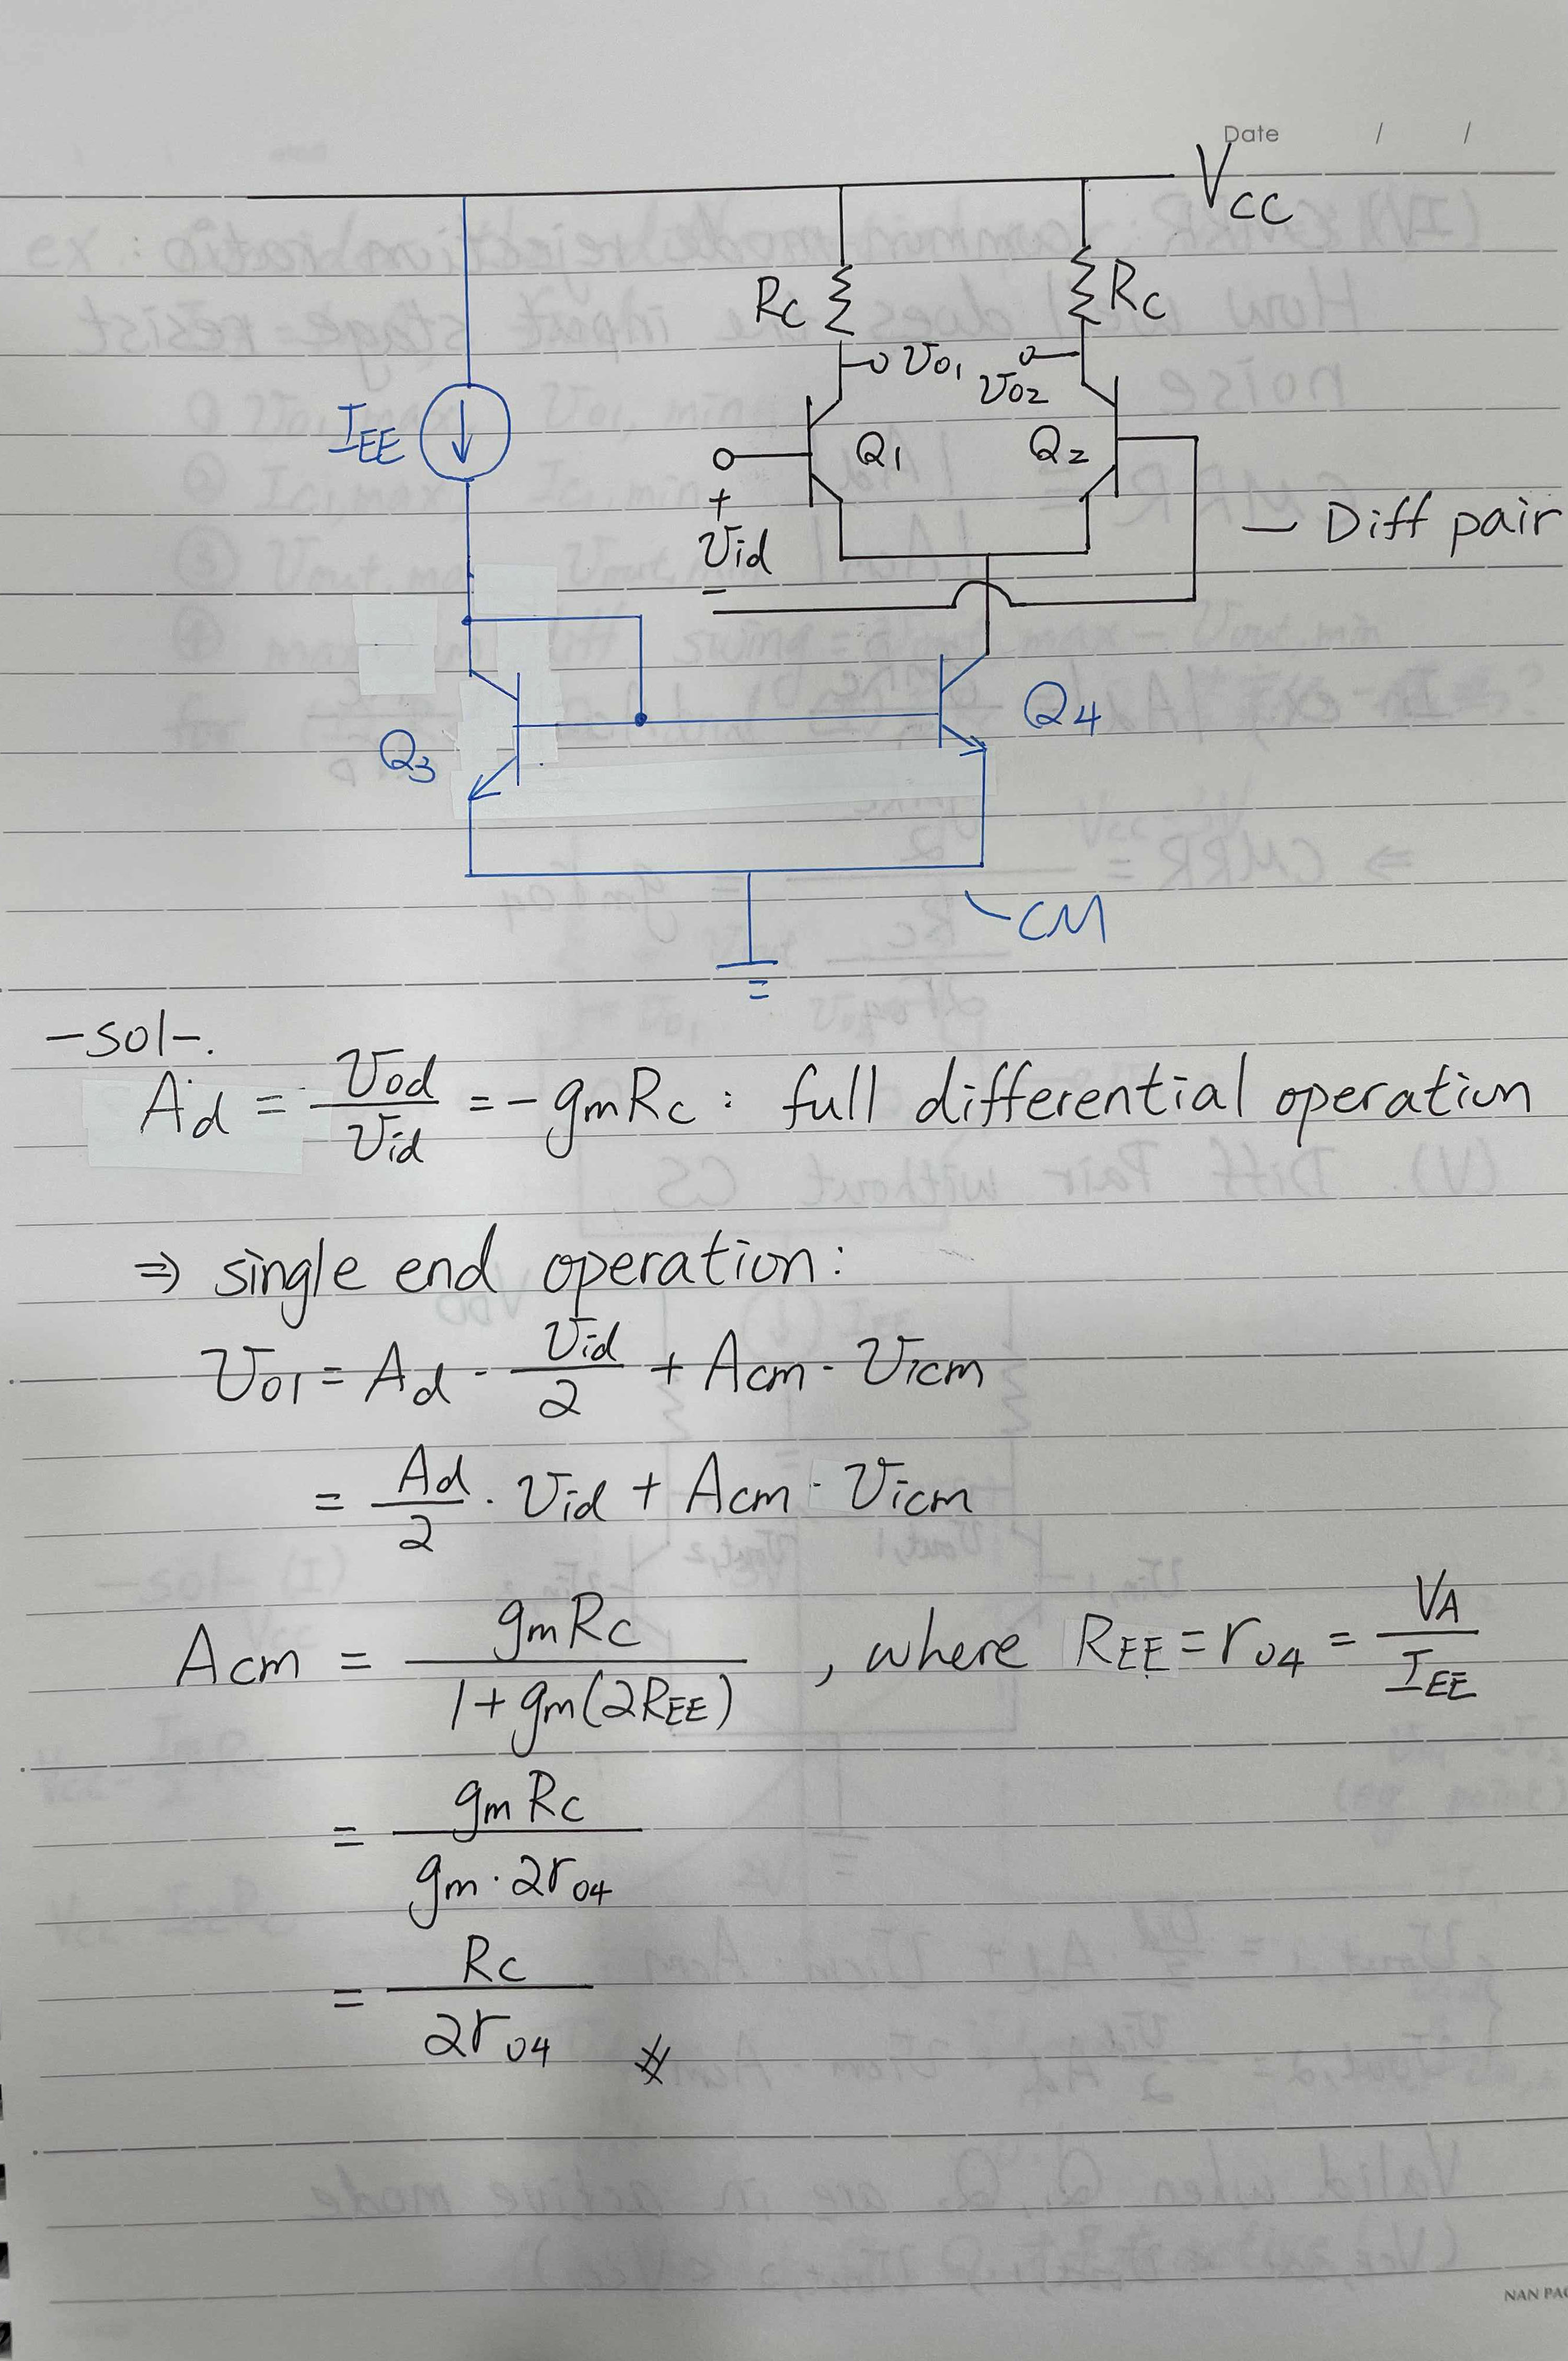 Date / /
VCC
RC
RC
vo1
vo2
IEE
Q1
Q2
+
vid
-
— Diff pair
Q3
Q4
CM
-sol-.
Ad = vod / vid = -gmRC : full differential operation
⇒ single end operation:
vo1 = Ad · vid / 2 + Acm · vicm
= Ad / 2 · vid + Acm · vicm
Acm = gmRC / 1+gm(2REE) , where REE = ro4 = VA / IEE
= gmRC / gm·2ro4
= RC / 2ro4